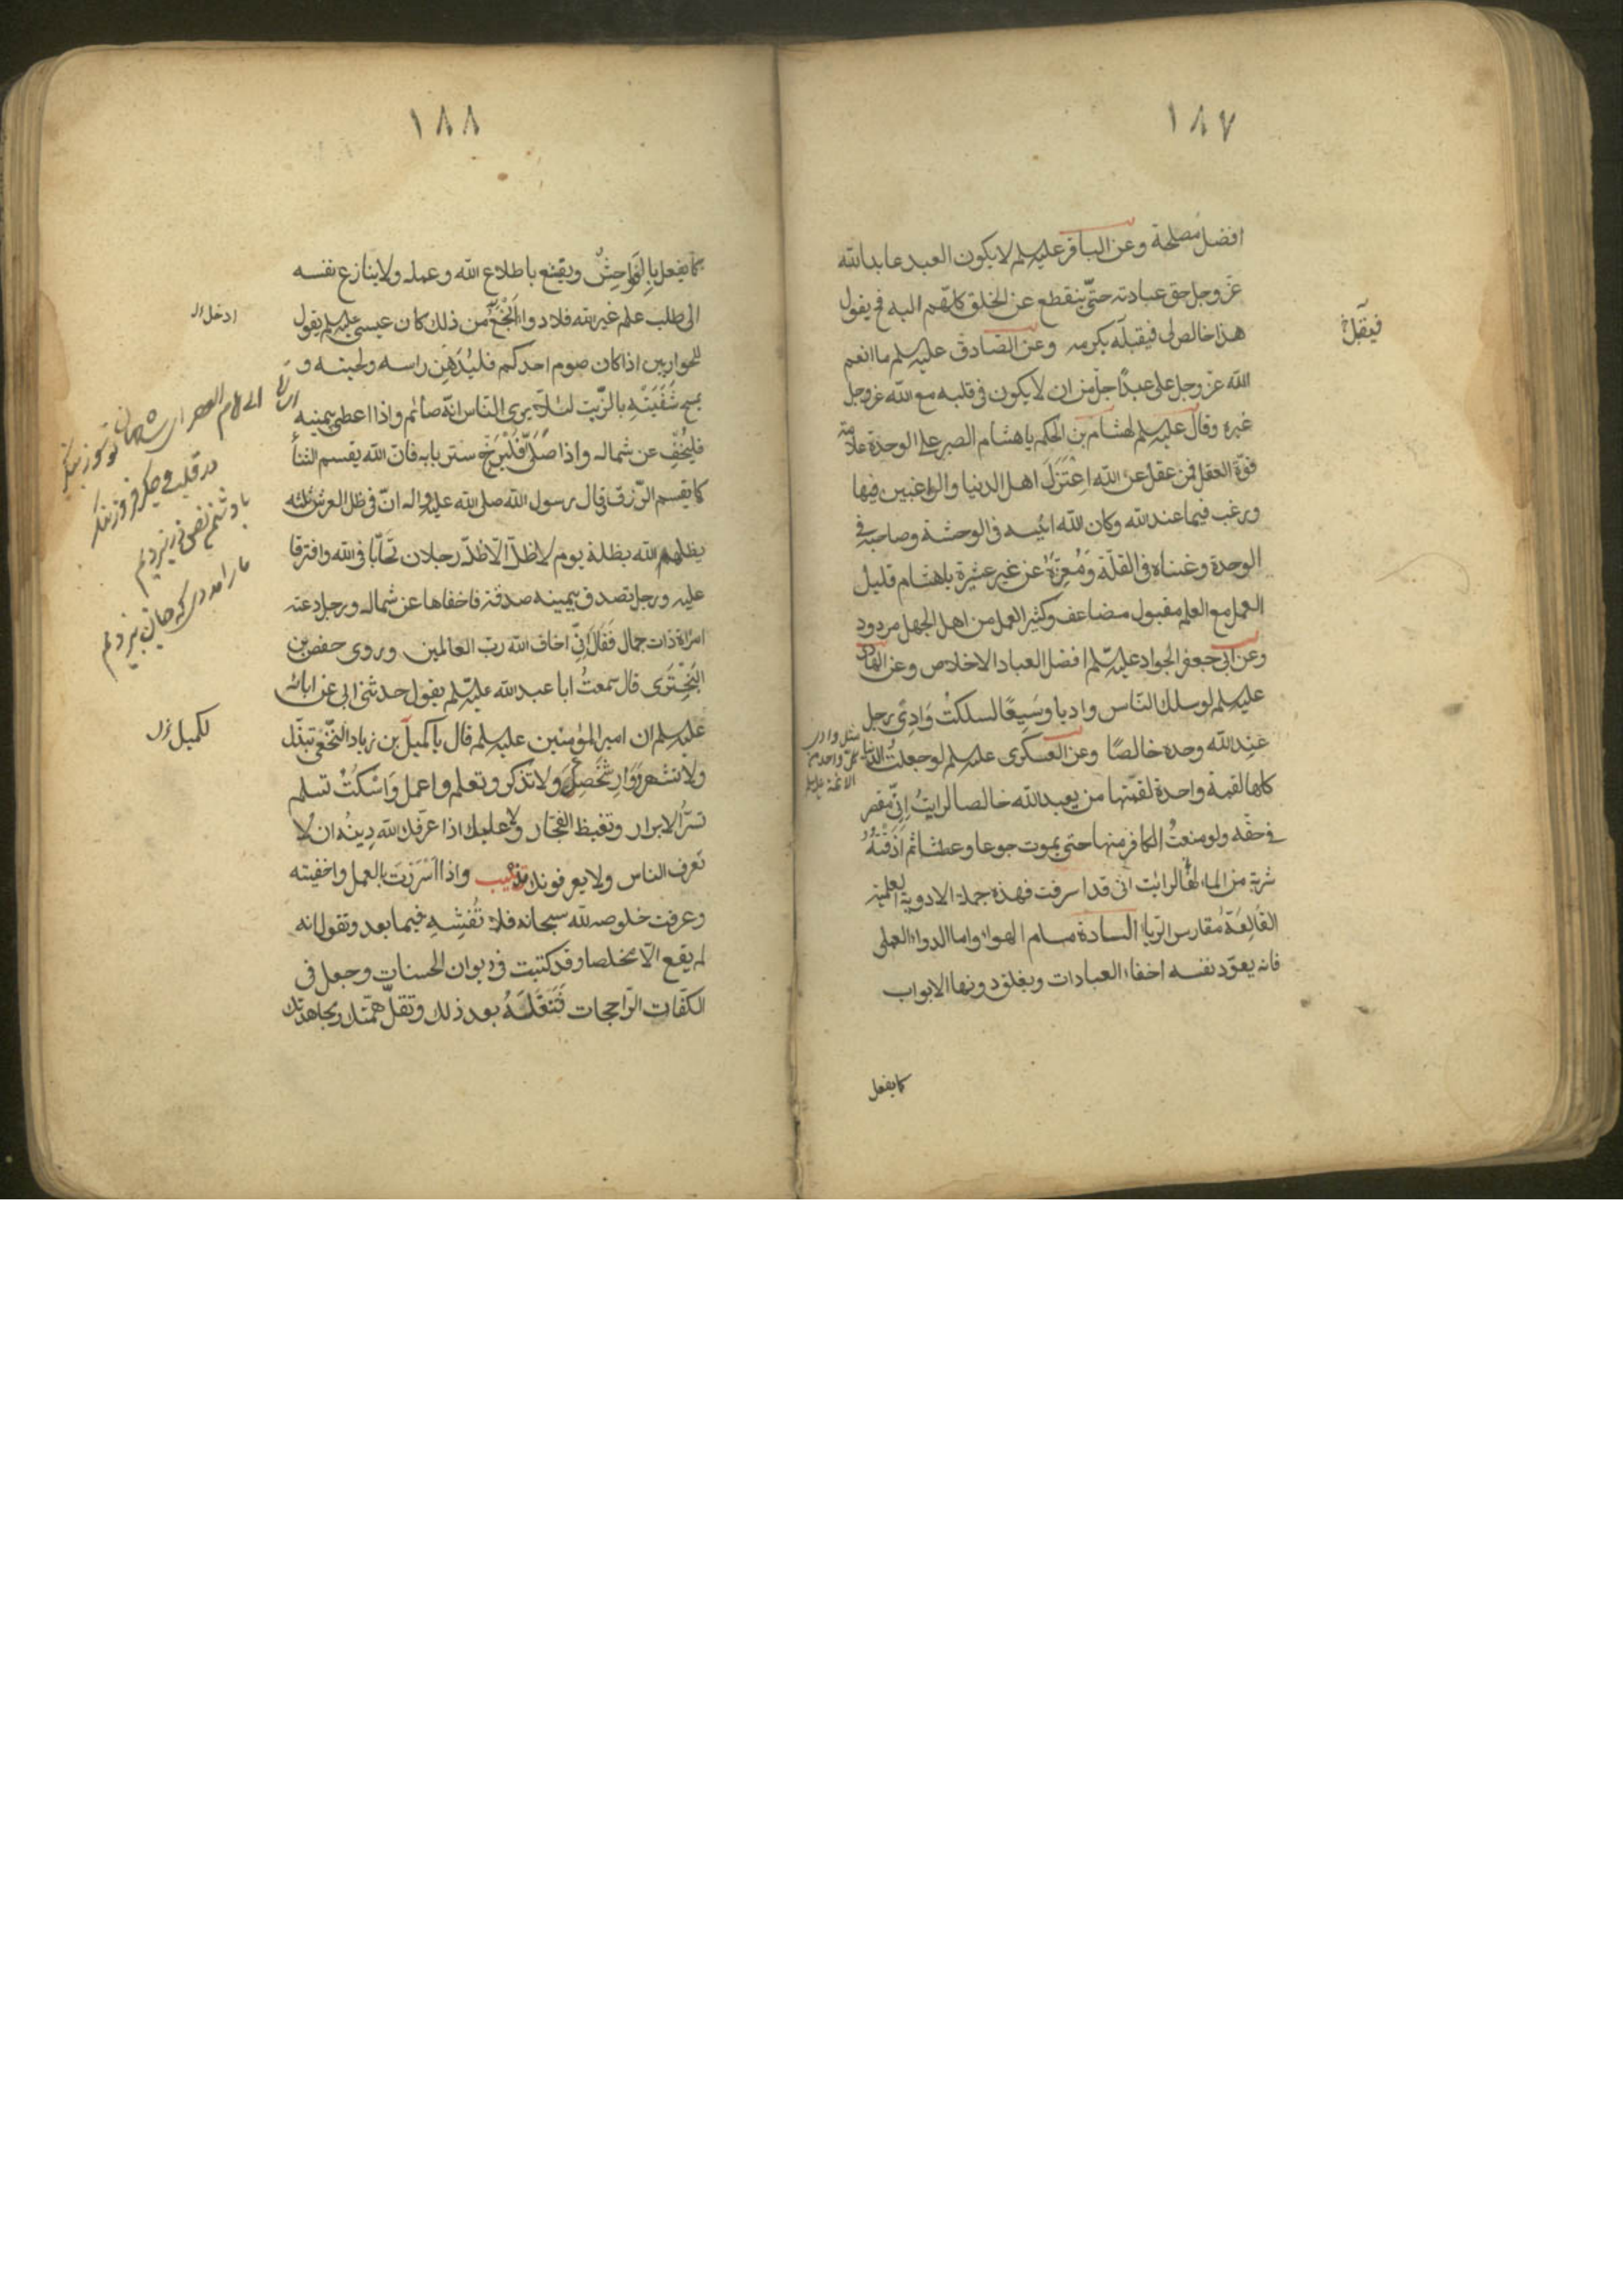 ١٨٧
افضل مصلحة وعن الباقر عليه السلم لا يكون العبد عابدا لله
عز وجل حق عبادته حتى ينقطع عن الخلق كلهم اليه فح يقول
هذا خالص لى فيقبله بكرمه وعن الصادق عليه السلم ما انعم
الله عز وجل على عبد اجل من ان لا يكون فى قلبه مع الله عز وجل
غيره وقال عليه السلم لهشام بن الحكم يا هشام الصبر على الوحدة علامة
قوة العقل فمن عقل عن الله اعتزل اهل الدنيا والراغبين فيها
ورغب فيما عند الله وكان الله انيسه فى الوحشة وصاحبه فى
الوحدة وغناه فى القلة ومعزه عن غير عشيرة يا هشام قليل
العمل مع العلم مقبول مضاعف وكثير العمل من اهل الجهل مردود
وعن ابى جعفر الجواد عليه السلم افضل العباد الاخلاص وعن الهادى
عليه السلم لو سلك الناس واديا وسيعا لسلكت وادى رجل
عبد الله وحده خالصا وعن العسكرى عليه السلم لو جعلت الدنيا
كلها لقمة واحدة لقمتها من يعبد الله خالصا لرايت انى مقصر
فى حقه ولو منعت الكافر منها حتى يموت جوعا وعطشا ثم اذقته
شربة من الماء لرايت انى قد اسرفت فهذه جملة الادوية العلمية
القالعة مقارس الرياء السادة مسام الهواء واما الدواء العملى
فانه يعود نفسه اخفاء العبادات ويغلق دونها الابواب
كما يفعل
فيقبل خ
١٨٨
كما يفعل بالفواحش ويقنع باطلاع الله وعمله ولا ينازع نفسه
الى طلب علم غير الله فلا دواء انجع من ذلك كان عيسى عليه السلم يقول
للحواريين اذا كان صوم احدكم فليدهن راسه ولحيته و
يمسح شفتيه بالزيت لئلا يرى الناس انه صائم واذا اعطى بيمينه
فليخف عن شماله واذا صلى فليرخ ستر بابه فان الله يقسم الثناء
كما يقسم الرزق قال رسول الله صلى الله عليه واله ان فى ظل العرش ثلثة
يظلهم الله بظله يوم لا ظل الا ظله رجلان تحابا فى الله وافترقا
عليه ورجل تصدق بيمينه صدقة فاخفاها عن شماله ورجل دعته
امراة ذات جمال فقال انى اخاف الله رب العالمين وروى حفص بن
البخترى قال سمعت ابا عبد الله عليه السلم يقول حدثنى ابى عن ابائه
عليهم السلم ان امير المؤمنين عليه السلم قال يا كميل بن زياد النخعى تبذل
ولا تشهر ووار شخصك ولا تذكر وتعلم واعمل واسكت تسلم
تسر الابرار وتغيظ الفجار ولا عليك اذا عرفك الله دينه ان لا
تعرف الناس ولا يعرفونك تذنيب واذا اسررت بالعمل واخفيته
وعرفت خلوصه لله سبحانه فلا تفشه فيما بعد وتقول انه
لم يقع الا مخلصا وقد كتبت فى ديوان الحسنات وجعل فى
الكفات الراجحات فتغفله بعد ذلك وتقل همتك بمجاهدتك